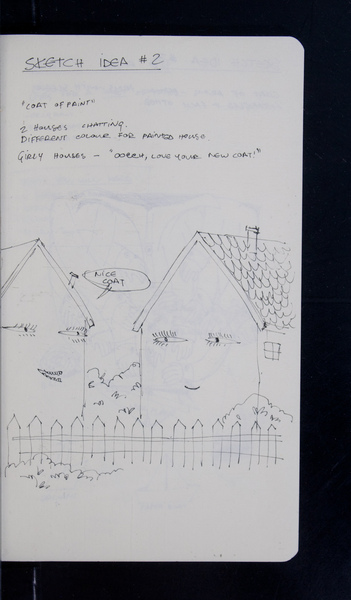 SKETCH IDEA #2
"COAT OF PAINT"
2 HOUSES CHATTING.
DIFFERENT COLOUR FOR PAINTED HOUSE
GIRLY HOUSES - "OOEEH, LOVE YOUR NEW COAT!"
NICE
COAT